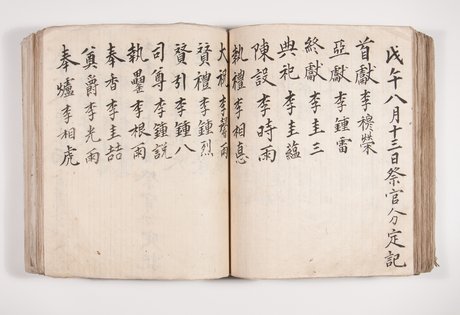 戊午八月十三日祭官分定記
首獻 李穆榮
亞獻 李鍾雷
終獻 李圭三
典祀 李圭蘊
陳設 李時雨
執禮 李相悳
大祝 李
贊禮 李鍾烈
贊引 李鍾八
司尊 李鍾說
執罍 李根雨
奉香 李圭喆
奠爵 李光雨
奉爐 李相虎